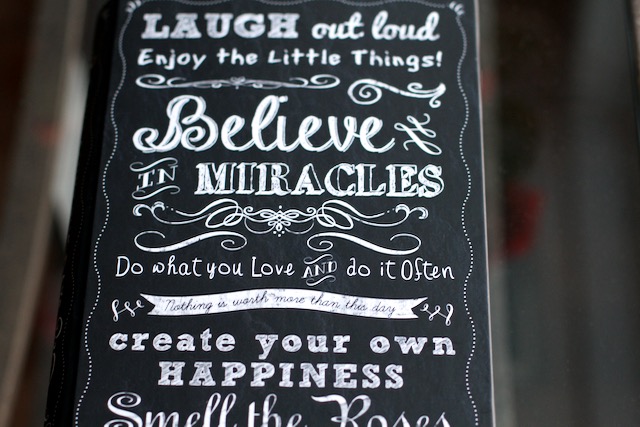 LAUGH out loud
Enjoy the Little Things!
Believe
IN MIRACLES
Do what you Love AND do it Often
Nothing is worth more than this day
create your own
HAPPINESS
Smell the Roses